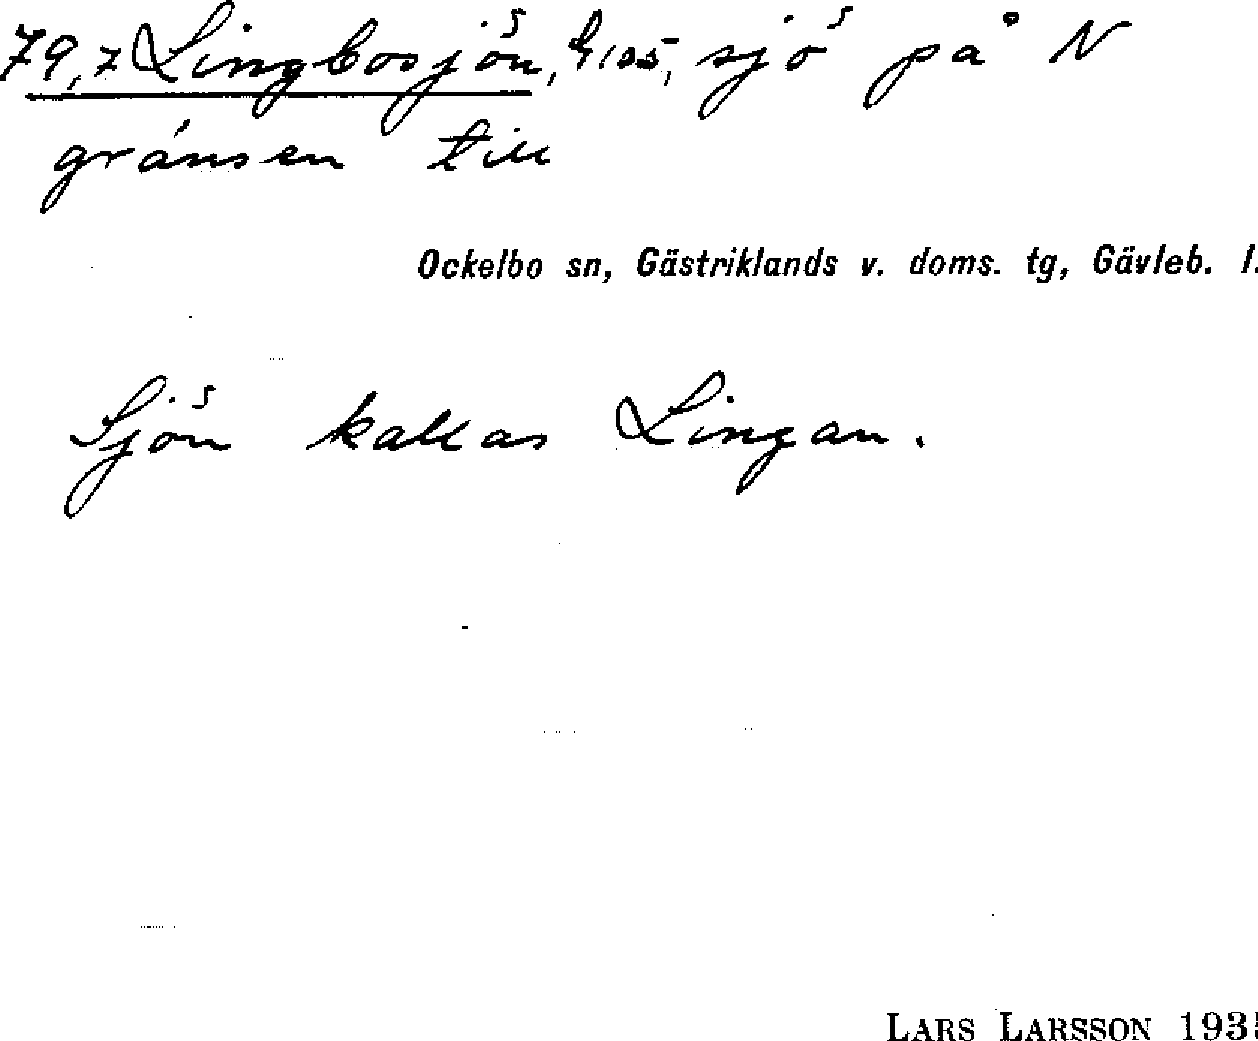 79,7 Lingbosjön, 4/105, sjö på N
gränsen till
Ockelbo sn, Gästriklands v. doms. tg, Gävleb. l.
Sjön kallas Lingan.
LARS LARSSON 193